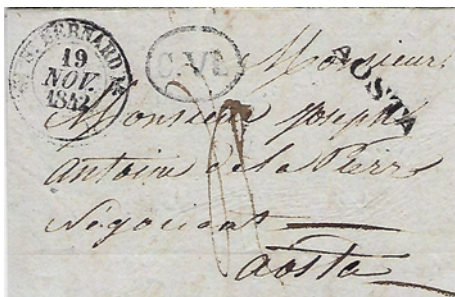 ST. BERNARD
19
NOV.
1842
C.VS.
AOSTA
Monsieur
Monsieur Joseph
Antoine de la Pierre
Négociant
aosta